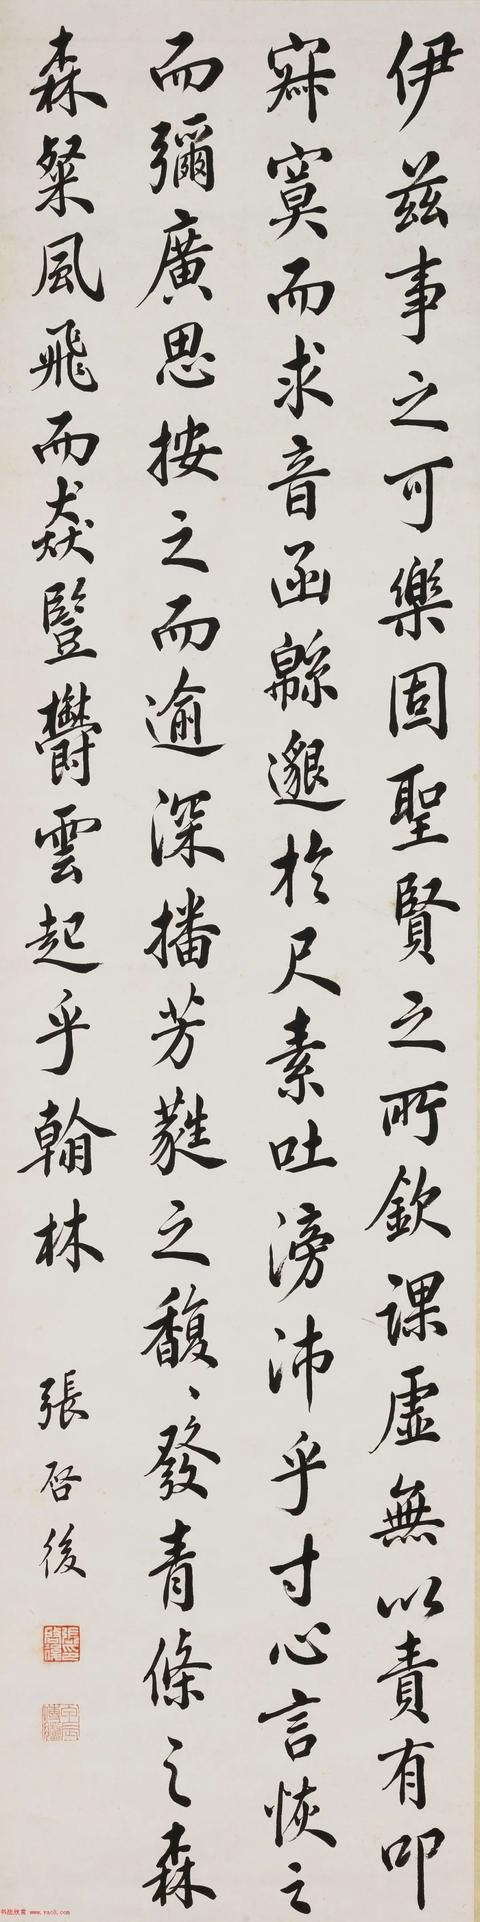 伊茲事之可樂固聖賢之所欽課虛無以責有叩
寂寞而求音函緜邈於尺素吐滂沛乎寸心言恢之
而彌廣思按之而逾深播芳蕤之馥、發青條之森
森粲風飛而猋豎鬱雲起乎翰林
張启後
书法欣赏 www.yac8.com